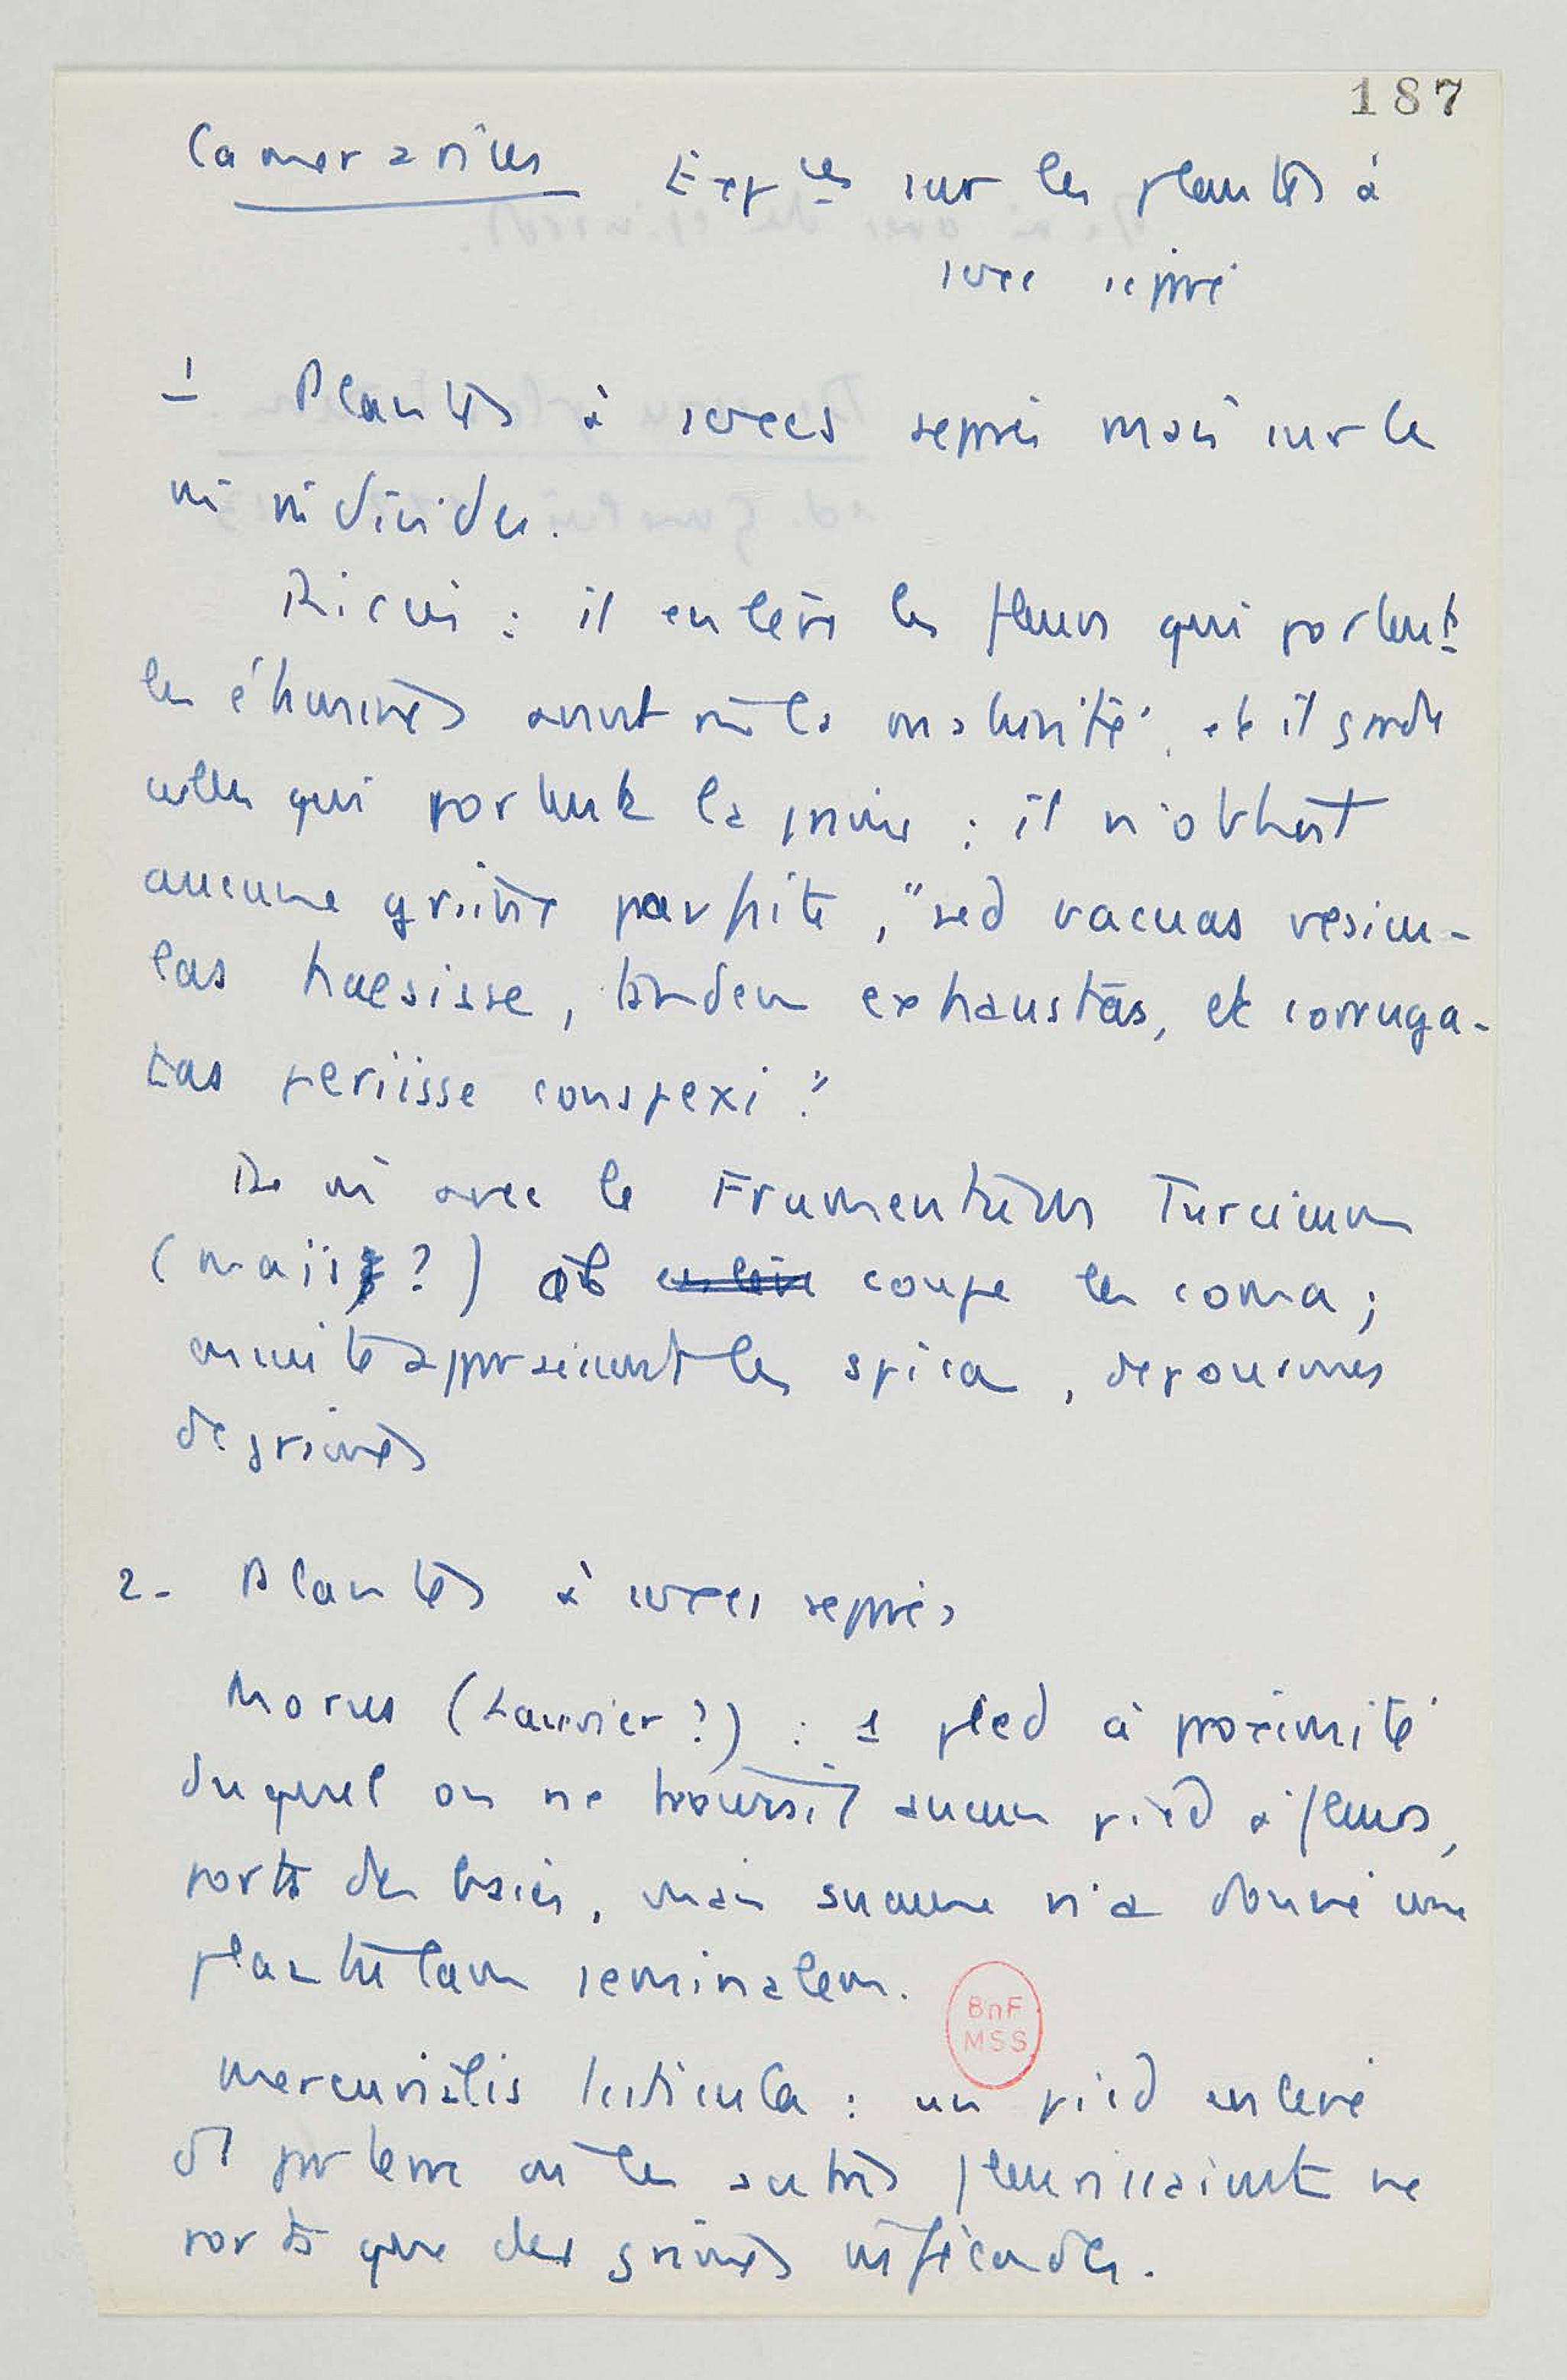 187
Camerarius Expces sur les plantes à
sexe séparé
1 Plantes à sexes séparés mais sur le
m̂ individu.
Ricin : il enlève les fleurs qui portent
les étamines avant la maturité, et il garde
celles qui portent la graine : il n'obtient
aucune graine parfaite, "sed vacuas vesicu-
las haesisse, tandem exhaustas, et corruga-
tas periisse conspexi".
De m̂ avec le Frumentum Turcicum
(maïs ?) coupe les coma ;
ensuite apparaissent les spica, dépourvues
de graines
2- Plantes à sexes séparés
Morus (Laurier ?) : 1 pied à proximité
duquel on ne trouvait aucun pied à fleurs,
porte des baies, mais aucune n'a donné une
plantulam seminalem.
BnF
MSS
Mercurialis testiculata : un pied enlevé
de terre où les autres fleurissaient ne
porte que des graines infécondes.